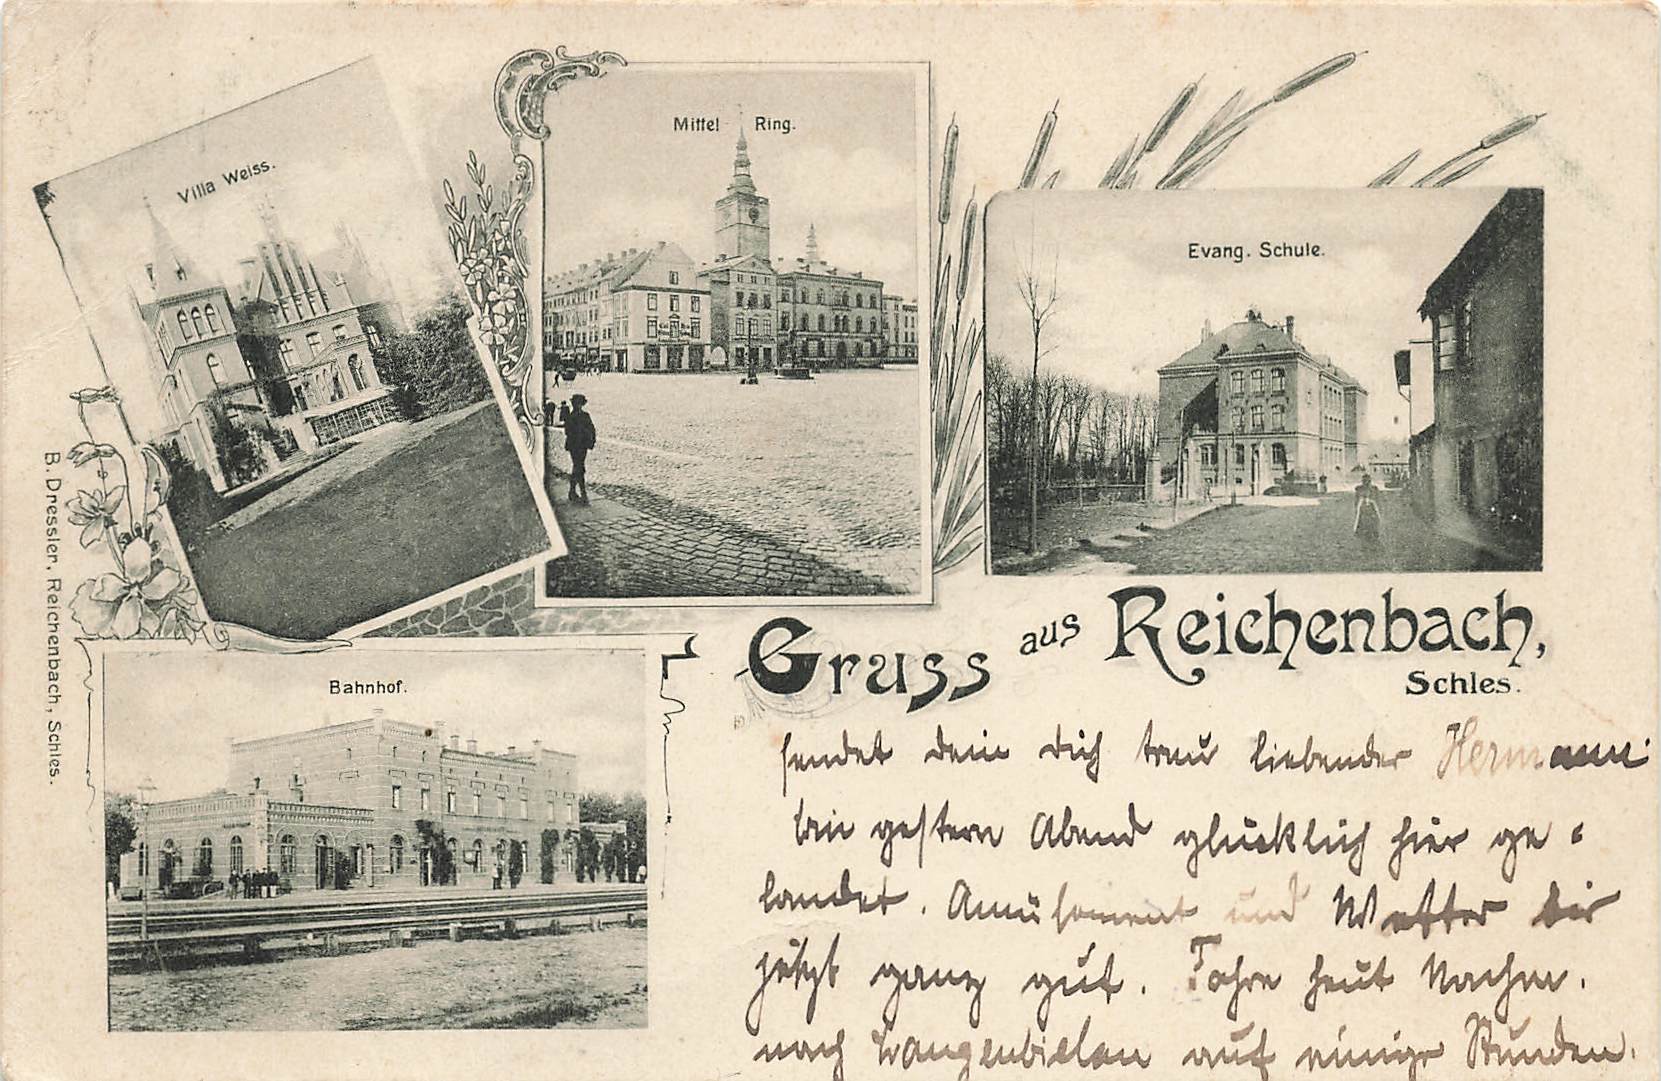 Villa Weiss.
Mittel Ring.
Evang. Schule.
Bahnhof.
B. Dressler, Reichenbach, Schles.
Gruss aus Reichenbach,
Schles.
sendet dein dich treu liebender Hermann.
bin gestern Abend glücklich hier ge-
landet. Amüsement und Wetter bis
jetzt ganz gut. Fahre heut Nachm.
nach Langenbielau auf einige Stunden.